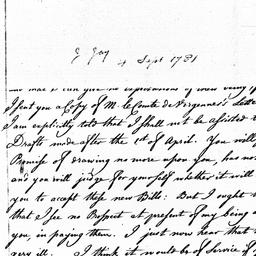 J Jay
4 Sept 1781
I sent you a Copy of M. le Comte de Vergennes's Lette
I am explicitly told that I shall not be assisted
Drafts made after the 1st of April. You will
Promise of drawing no more upon you, has no
and you will judge for yourself whether it will
you to accept these new Bills: But I ought
that I see no Prospect at present of my being a
you in paying them. I just now hear that
very ill. I think it would be of Service